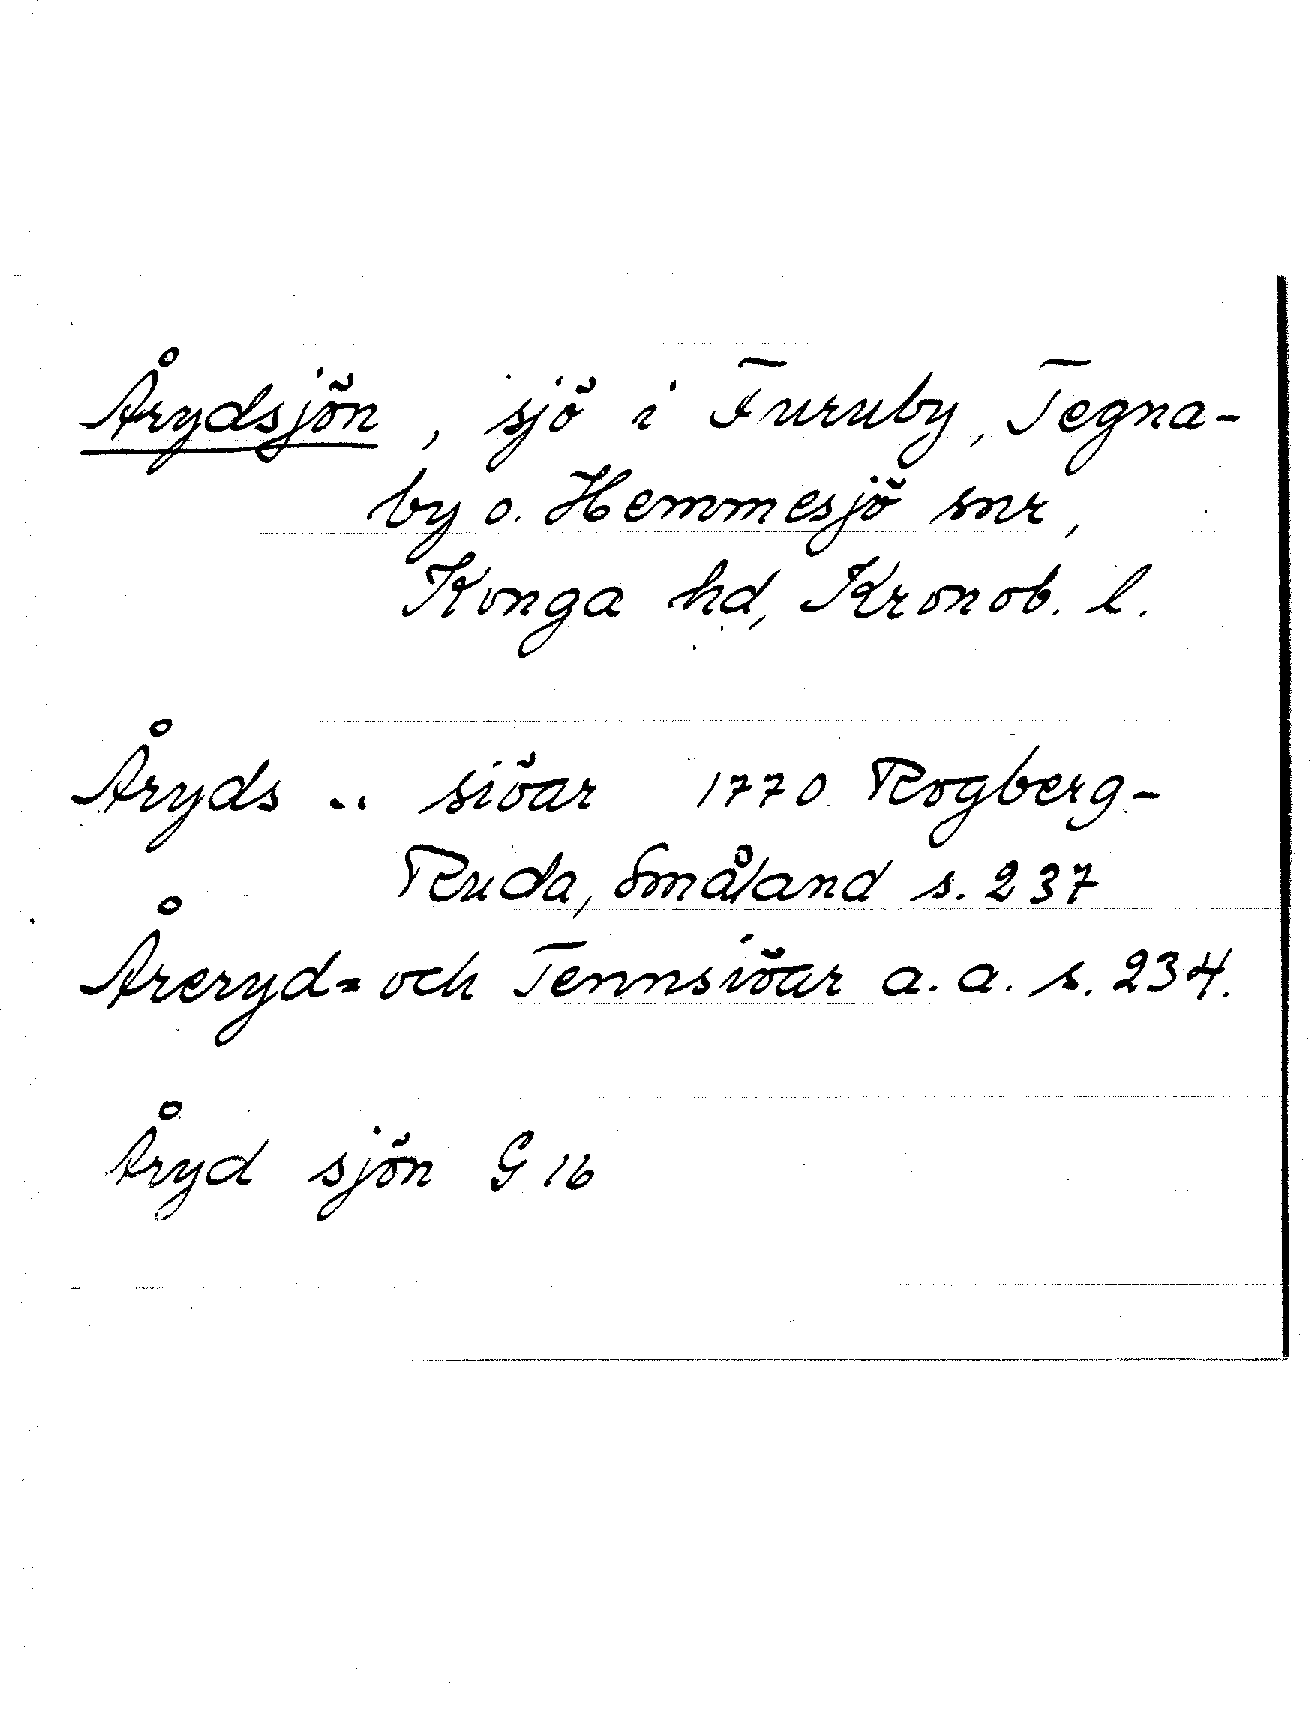 Årydsjön, sjö i Furuby, Tegna-
by o. Hemmesjö snr,
Konga hd, Kronob. l.
Åryds .. siöar 1770 Rogberg-
Ruda, Småland s. 237
Åreryd= och Tennsiöar a. a. s. 234.
Åryd sjön G 16